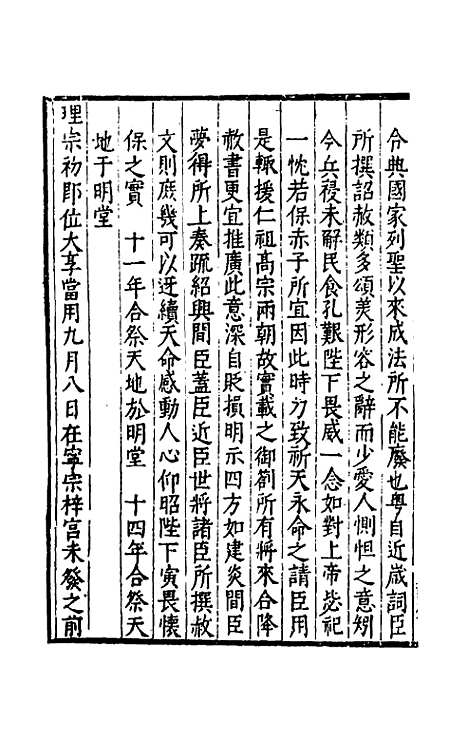 令典國家列聖以來成法所不能廢也粤自近歲詞臣
所撰詔赦類多頌羙形容之辭而少愛人惻怛之意矧
今兵祲未觧民食孔艱陛下畏威一念如對上帝毖祀
一忱若保赤子所宜因此時力致祈天永命之請臣用
是輒援仁祖髙宗兩朝故實載之御劄所有將來合降
赦書更宜推廣此意深自貶損明示四方如建炎間臣
夢得所上奏疏紹興間臣葢臣近臣世將諸臣所撰赦
文則庶幾可以迓續天命感動人心仰昭陛下寅畏懐
保之實　十一年合祭天地於明堂　十四年合祭天
地于明堂
理宗初即位大享當用九月八日在寧宗梓宮未發之前